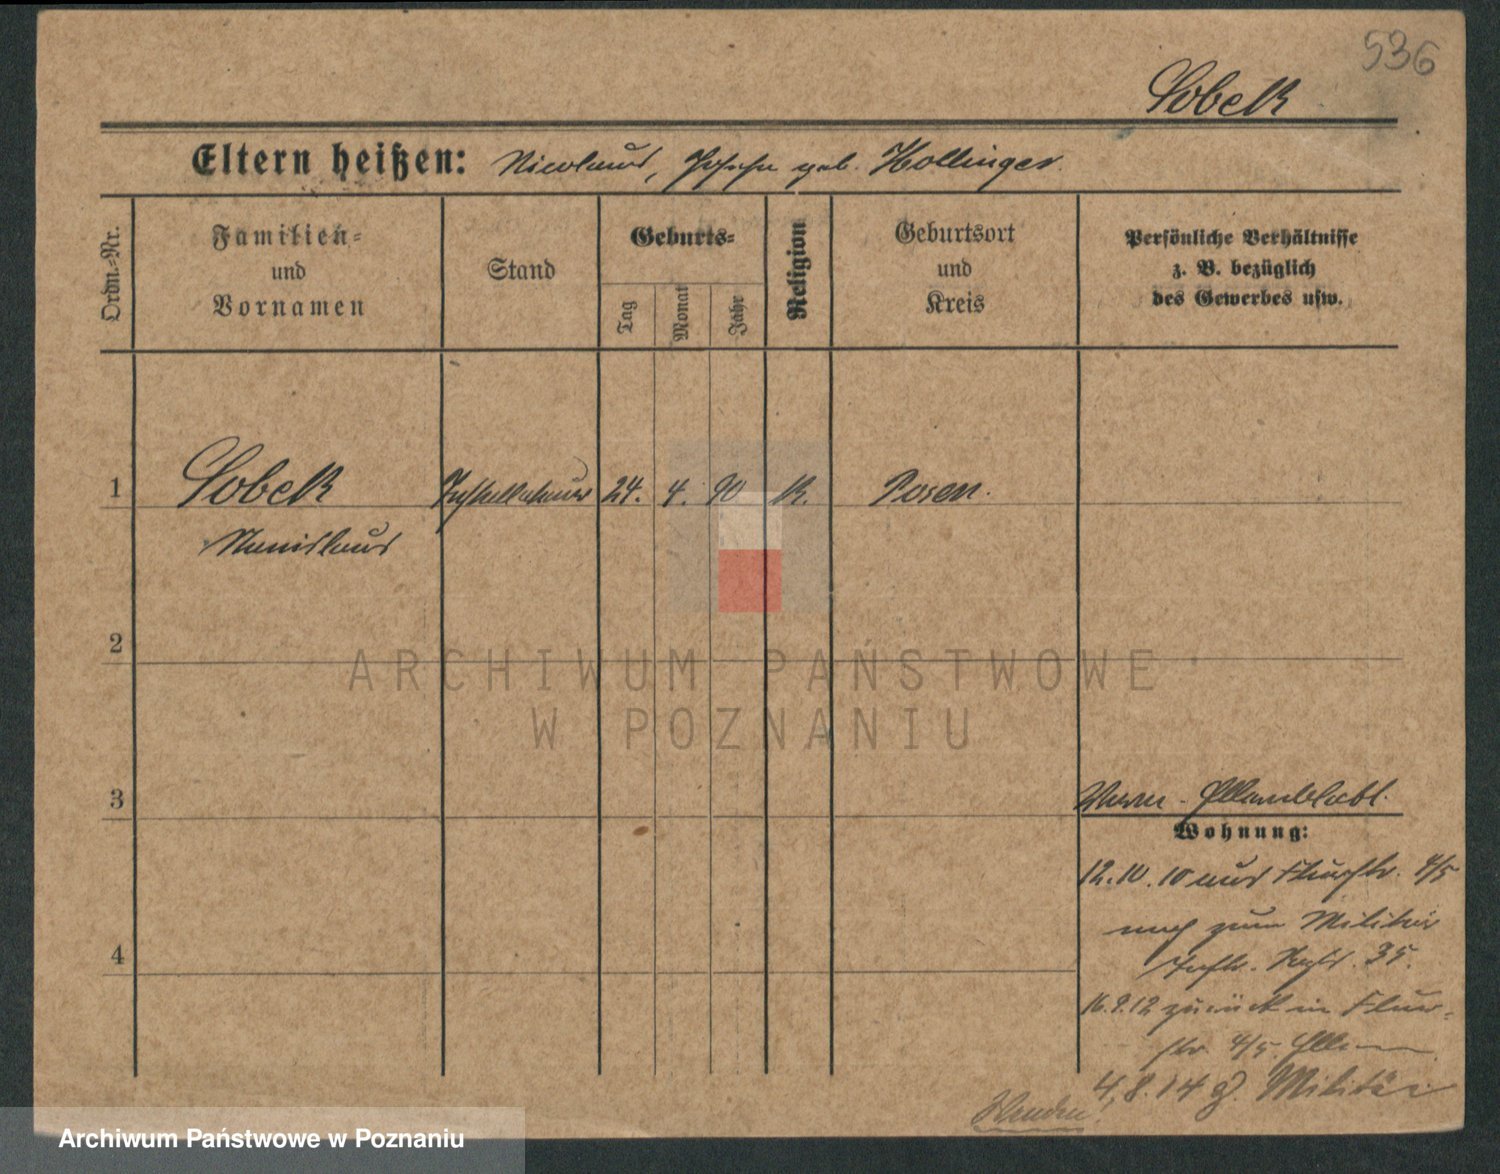 536
Sobek
Eltern heißen: Nicolaus, Josefa geb. Hollinger.
Ordn.-Nr.
Familien-
und
Vornamen
Stand
Geburts-
Tag
Monat
Jahr
Religion
Geburtsort
und
Kreis
Persönliche Verhältnisse
z. B. bezüglich
des Gewerbes usw.
1 Sobek 24. 4. 90 K. Posen.
Stanislaus
2
ARCHIWUM PAŃSTWOWE
W POZNANIU
3
Wohnung:
12.10.10 aus Flurstr. 4/5
4
nach zum Militär
Inftr. Regt. 35.
16.9.12 zurück in Flur-
str. 4/5
4.8.14 z. Militär
Wenden!
Archiwum Państwowe w Poznaniu